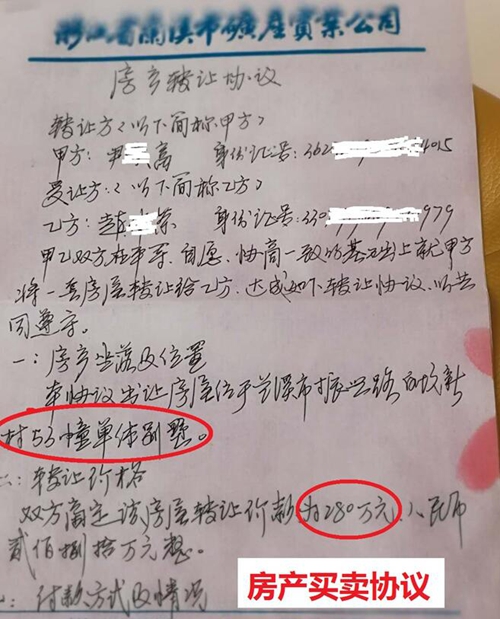 浙江省兰溪市矿产实业公司
房产转让协议
转让方(以下简称甲方)
甲方: 尹 高 身份证号: 362 4015
受让方:(以下简称乙方)
乙方: 赵 荣 身份证号: 330 979
甲乙双方在平等、自愿、协商一致的基础上就甲方
将一套房屋转让给乙方、达成如下转让协议,以共
同遵守。
一: 房产坐落及位置
本协议出让房屋位于兰溪市振兴路 新
村53幢单体别墅。
二: 转让价格
双方商定该房屋转让价款为280万元、人民币
贰佰捌拾万元整。
: 付款方式及情况
房产买卖协议